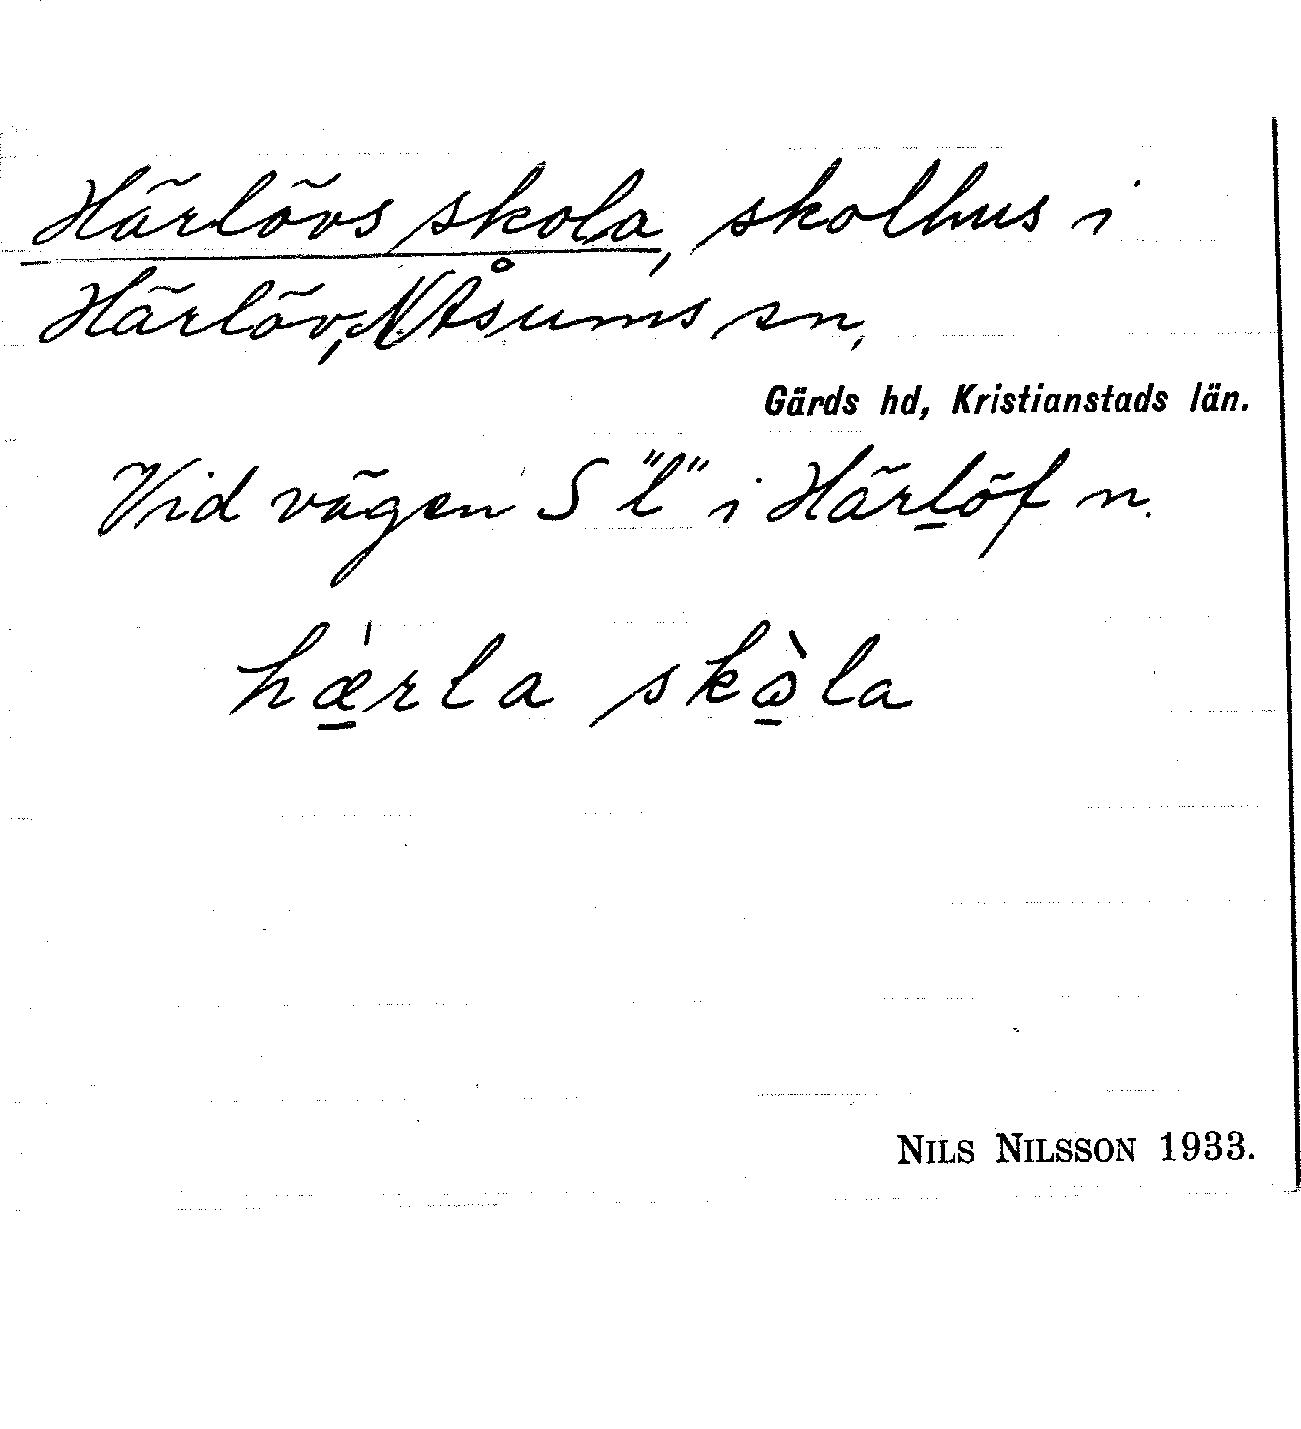 Härlövs skola, skolhus i
Härlöv, N Åsums sn,
Gärds hd, Kristianstads län.
Vid vägen S "l" i Härl̲öf n.
hæ̲̍rla skɷ̲̀la
NILS NILSSON 1933.